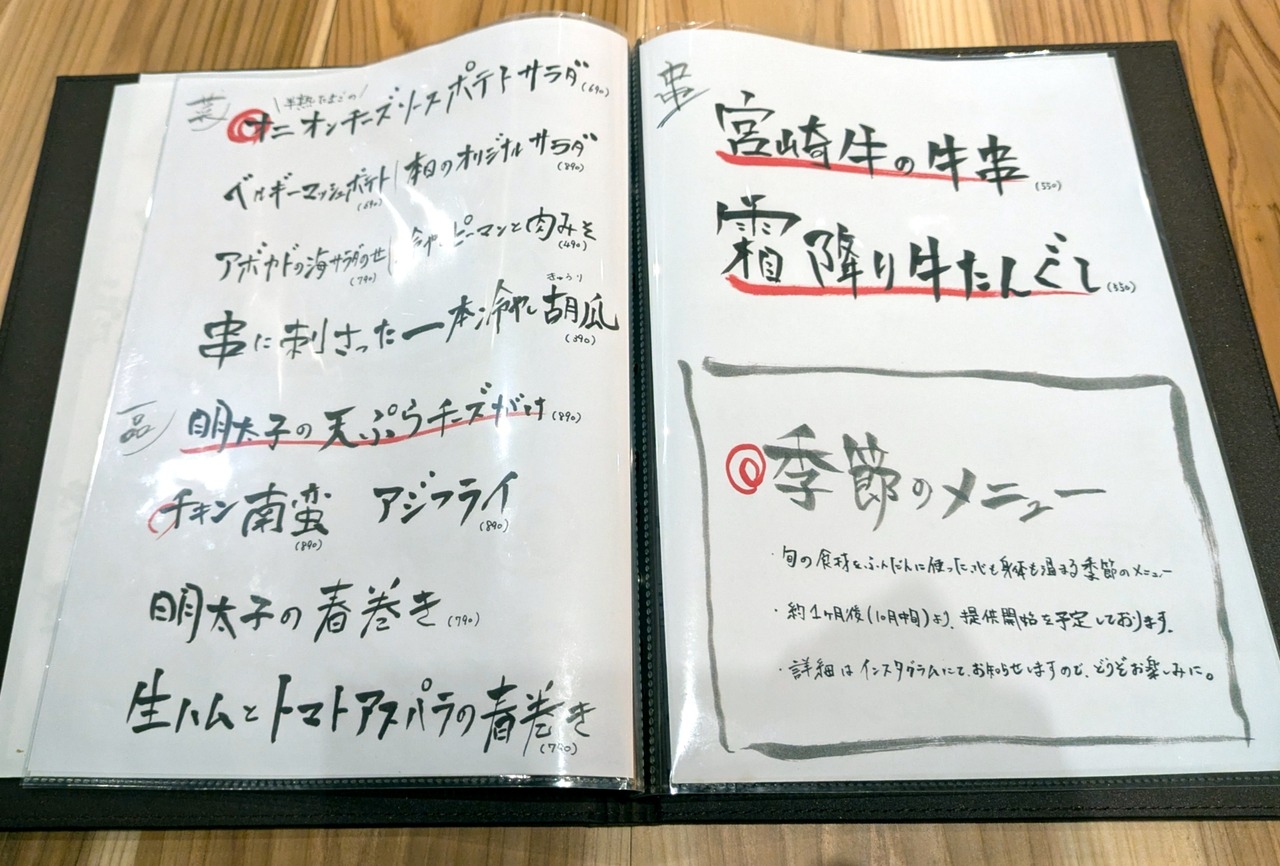 菜
半熟たまごの
オニオンチーズソースポテトサラダ(690)
ベルギーマッシュポテト(690) 本日のオリジナルサラダ(890)
アボカドの海サラダのせ(790) 冷やしピーマンと肉みそ(490)
きゅうり
串に刺さった一本冷やし胡瓜(390)
一品
明太子の天ぷらチーズがけ(890)
チキン南蛮(890) アジフライ(890)
明太子の春巻き(790)
生ハムとトマトアスパラの春巻き(790)
串
宮崎牛の牛串(550)
霜降り牛たんぐし(550)
季節のメニュー
・旬の食材をふんだんに使った、心も身体も温まる季節のメニュー
・約1ヶ月後(10月中旬)より、提供開始を予定しております。
・詳細はインスタグラムにてお知らせしますので、どうぞお楽しみに。